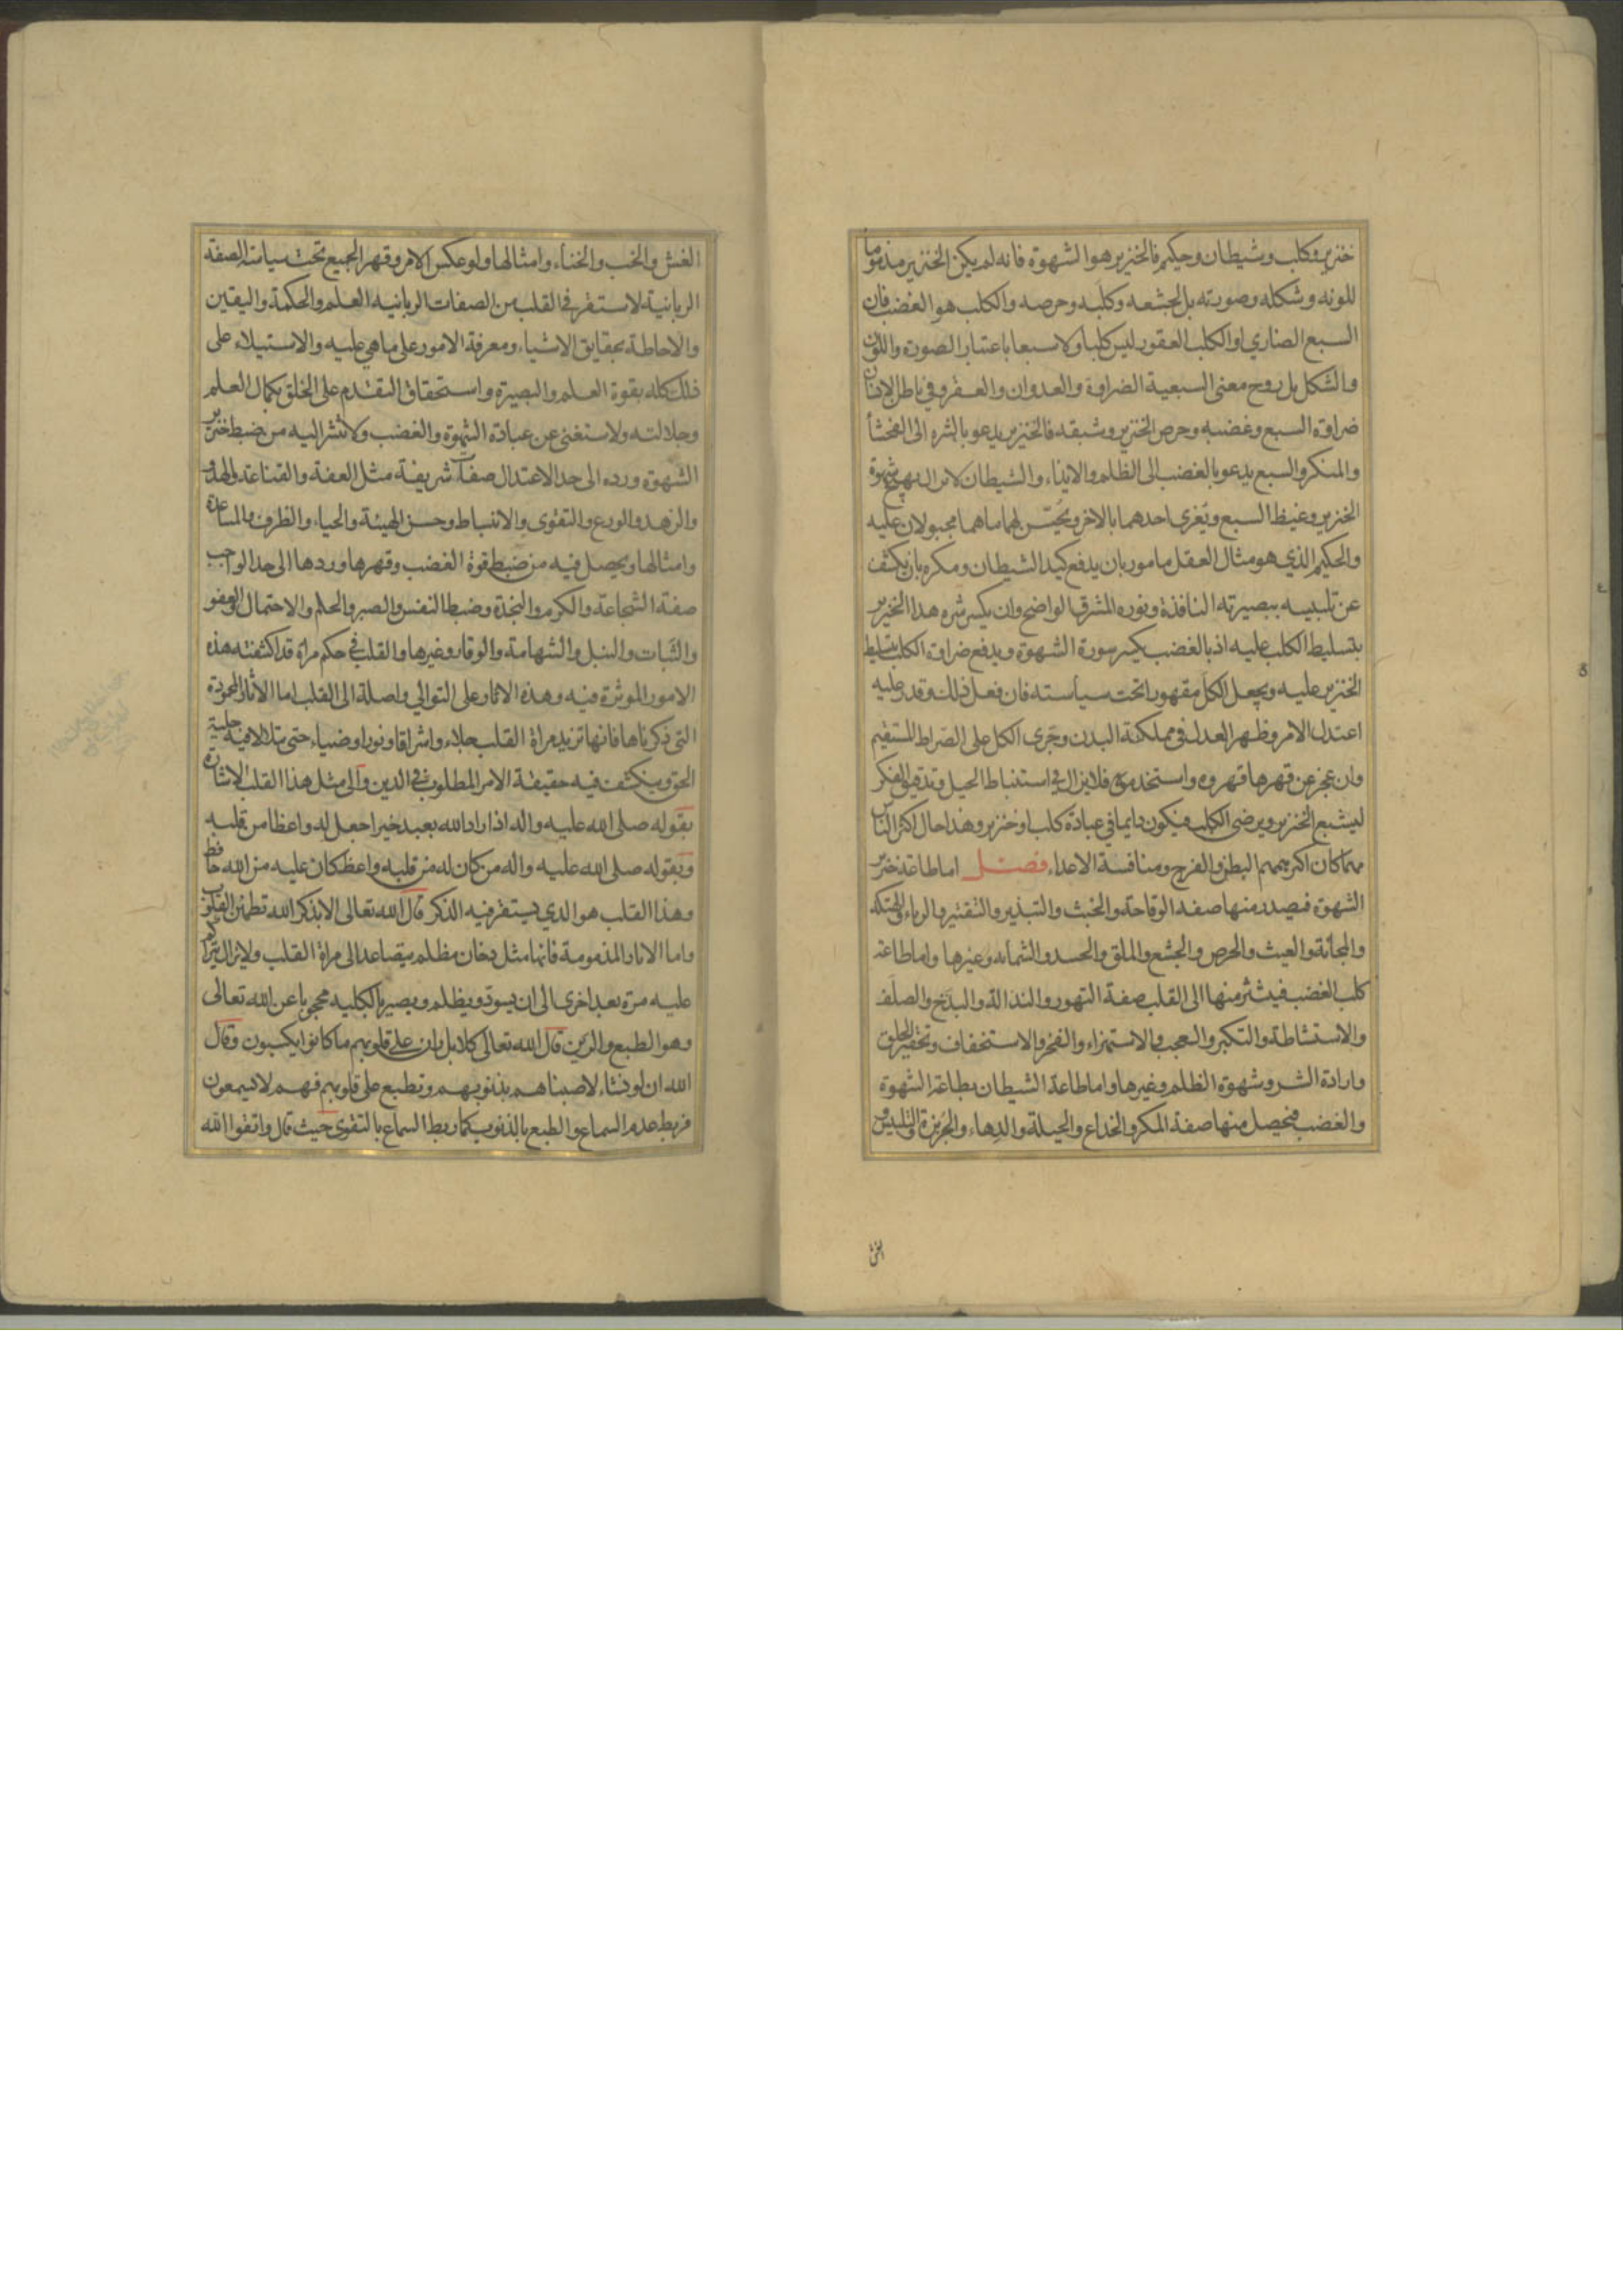 خنزير وكلب وشيطان وحكيم فالخنزير هو الشهوة فانه لم يكن الخنزير مذموما
للونه وشكله وصورته بل لجشعه وكلبه وحرصه والكلب هو الغضب فان
السبع الضاري او الكلب العقور ليس كلبا ولا سبعا باعتبار الصورة واللون
والشكل بل روح معنى السبعية الضراوة والعدوان والعقر وفي باطن الانسان
ضراوة السبع وغضبه وحرص الخنزير وشبقه فالخنزير يدعو بالشره الى الفحشا
والمنكر والسبع يدعو بالغضب الى الظلم والايذاء والشيطان لا يزال يهيج شهوة
الخنزير وغيظ السبع ويغري احدهما بالاخر ويحسن لهما ما هما مجبولان عليه
والحكيم الذي هو مثال العقل مامور بان يدفع كيد الشيطان ومكره بان يكشف
عن تلبيسه ببصيرته النافذة ونوره المشرق الواضح وان يكسر شره هذا الخنزير
بتسليط الكلب عليه اذ بالغضب يكسر سورة الشهوة ويدفع ضراوة الكلب بتسليط
الخنزير عليه ويجعل الكل مقهورا تحت سياسته فان فعل ذلك وقدر عليه
اعتدل الامر وظهر العدل في مملكة البدن وجرى الكل على الصراط المستقيم
وان عجز عن قهرها قهروه واستخدموه فلا يزال في استنباط الحيل وتدقيق الفكر
ليشبع الخنزير ويرضى الكلب فيكون دايما في عبادة كلب او خنزير وهذا حال اكثر الناس
مهما كان اكثر همهم البطن والفرج ومنافسة الاعداء فصل اما طاعة خنزير
الشهوة فيصدر منها صفة الوقاحة والخبث والتبذير والتقتير والرياء والهتكة
والمجانة والعبث والحرص والجشع والملق والحسد والشماتة وغيرها واما طاعة
كلب الغضب فينتشر منها الى القلب صفة التهور والنذالة والبذخ والصلف
والاستشاطة والتكبر والعجب والاستهزاء والفخر والاستخفاف وتحقير الخلق
وارادة الشر وشهوة الظلم وغيرها واما طاعة الشيطان بطاعة الشهوة
والغضب فيحصل منها صفة المكر والخداع والحيلة والدهاء والجربزة والتلبيس و
الغش
الغش والخب والخناء وامثالها ولو عكس الامر وقهر الجميع تحت سياسة الصفة
الربانية لاستقر في القلب من الصفات الربانية العلم والحكمة واليقين
والاحاطة بحقايق الاشياء ومعرفة الامور على ما هي عليه والاستيلاء على
ذلك كله بقوة العلم والبصيرة واستحقاق التقدم على الخلق بكمال العلم
وجلالته ولاستغنى عن عبادة الشهوة والغضب ولانتشر اليه من ضبط خنزير
الشهوة ورده الى حد الاعتدال صفات شريفة مثل العفة والقناعة والهدو
والزهد والورع والتقوى والانبساط وحسن الهيئة والحياء والظرف والمساعدة
وامثالها ويحصل فيه من ضبط قوة الغضب وقهرها وردها الى حد الواجب
صفة الشجاعة والكرم والنجدة وضبط النفس والصبر والحلم والاحتمال والعفو
والثبات والنبل والشهامة والوقار وغيرها والقلب في حكم مراة قد اكتنفته هذه
الامور الموثرة فيه وهذه الاثار على التوالي واصلة الى القلب اما الاثار المحمودة
التي ذكرناها فانها تزيد مراة القلب جلاء واشراقا ونورا وضياء حتى يتلالا فيه جلية
الحق وينكشف فيه حقيقة الامر المطلوب في الدين والى مثل هذا القلب الاشارة
بقوله صلى الله عليه واله اذا اراد الله بعبد خيرا جعل له واعظا من قلبه
وبقوله صلى الله عليه واله من كان له من قلبه واعظ كان عليه من الله حافظ
وهذا القلب هو الذي يستقر فيه الذكر قال الله تعالى الا بذكر الله تطمئن القلوب
واما الاثار المذمومة فانها مثل دخان مظلم يتصاعد الى مراة القلب ولا يزال يتراكم
عليه مرة بعد اخرى الى ان يسود ويظلم ويصير بالكلية محجوبا عن الله تعالى
وهو الطبع والرين قال الله تعالى كلا بل ران على قلوبهم ما كانوا يكسبون وقال
الله ان لو نشاء لاصبناهم بذنوبهم ونطبع على قلوبهم فهم لا يسمعون
فربط عدم السماع والطبع بالذنوب كما ربط السماع بالتقوى حيث قال واتقوا الله